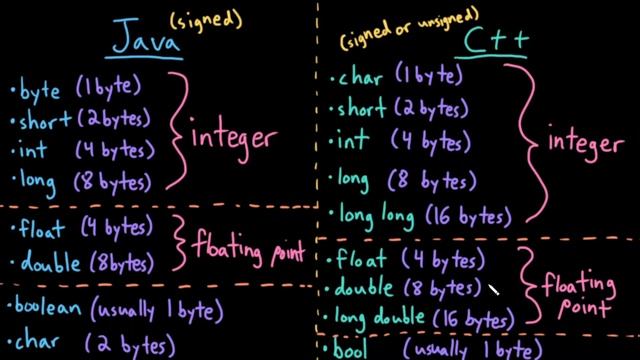 Java (signed)
• byte (1 byte)
• short (2 bytes)
• int (4 bytes)
• long (8 bytes)
integer
• float (4 bytes)
• double (8 bytes)
floating point
• boolean (usually 1 byte)
• char (2 bytes)
(signed or unsigned) C++
• char (1 byte)
• short (2 bytes)
• int (4 bytes)
• long (8 bytes)
• long long (16 bytes)
integer
• float (4 bytes)
• double (8 bytes)
• long double (16 bytes)
floating
point
• bool (usually 1 byte)